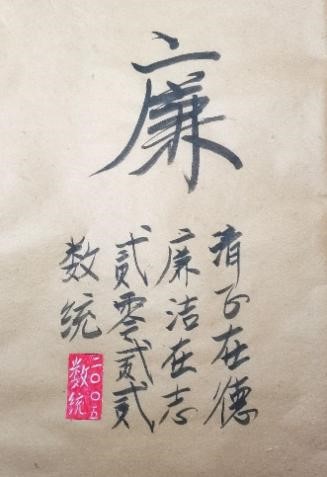 廉
清正在德
廉洁在志
貳零貳貳
数统
二〇〇五
数统